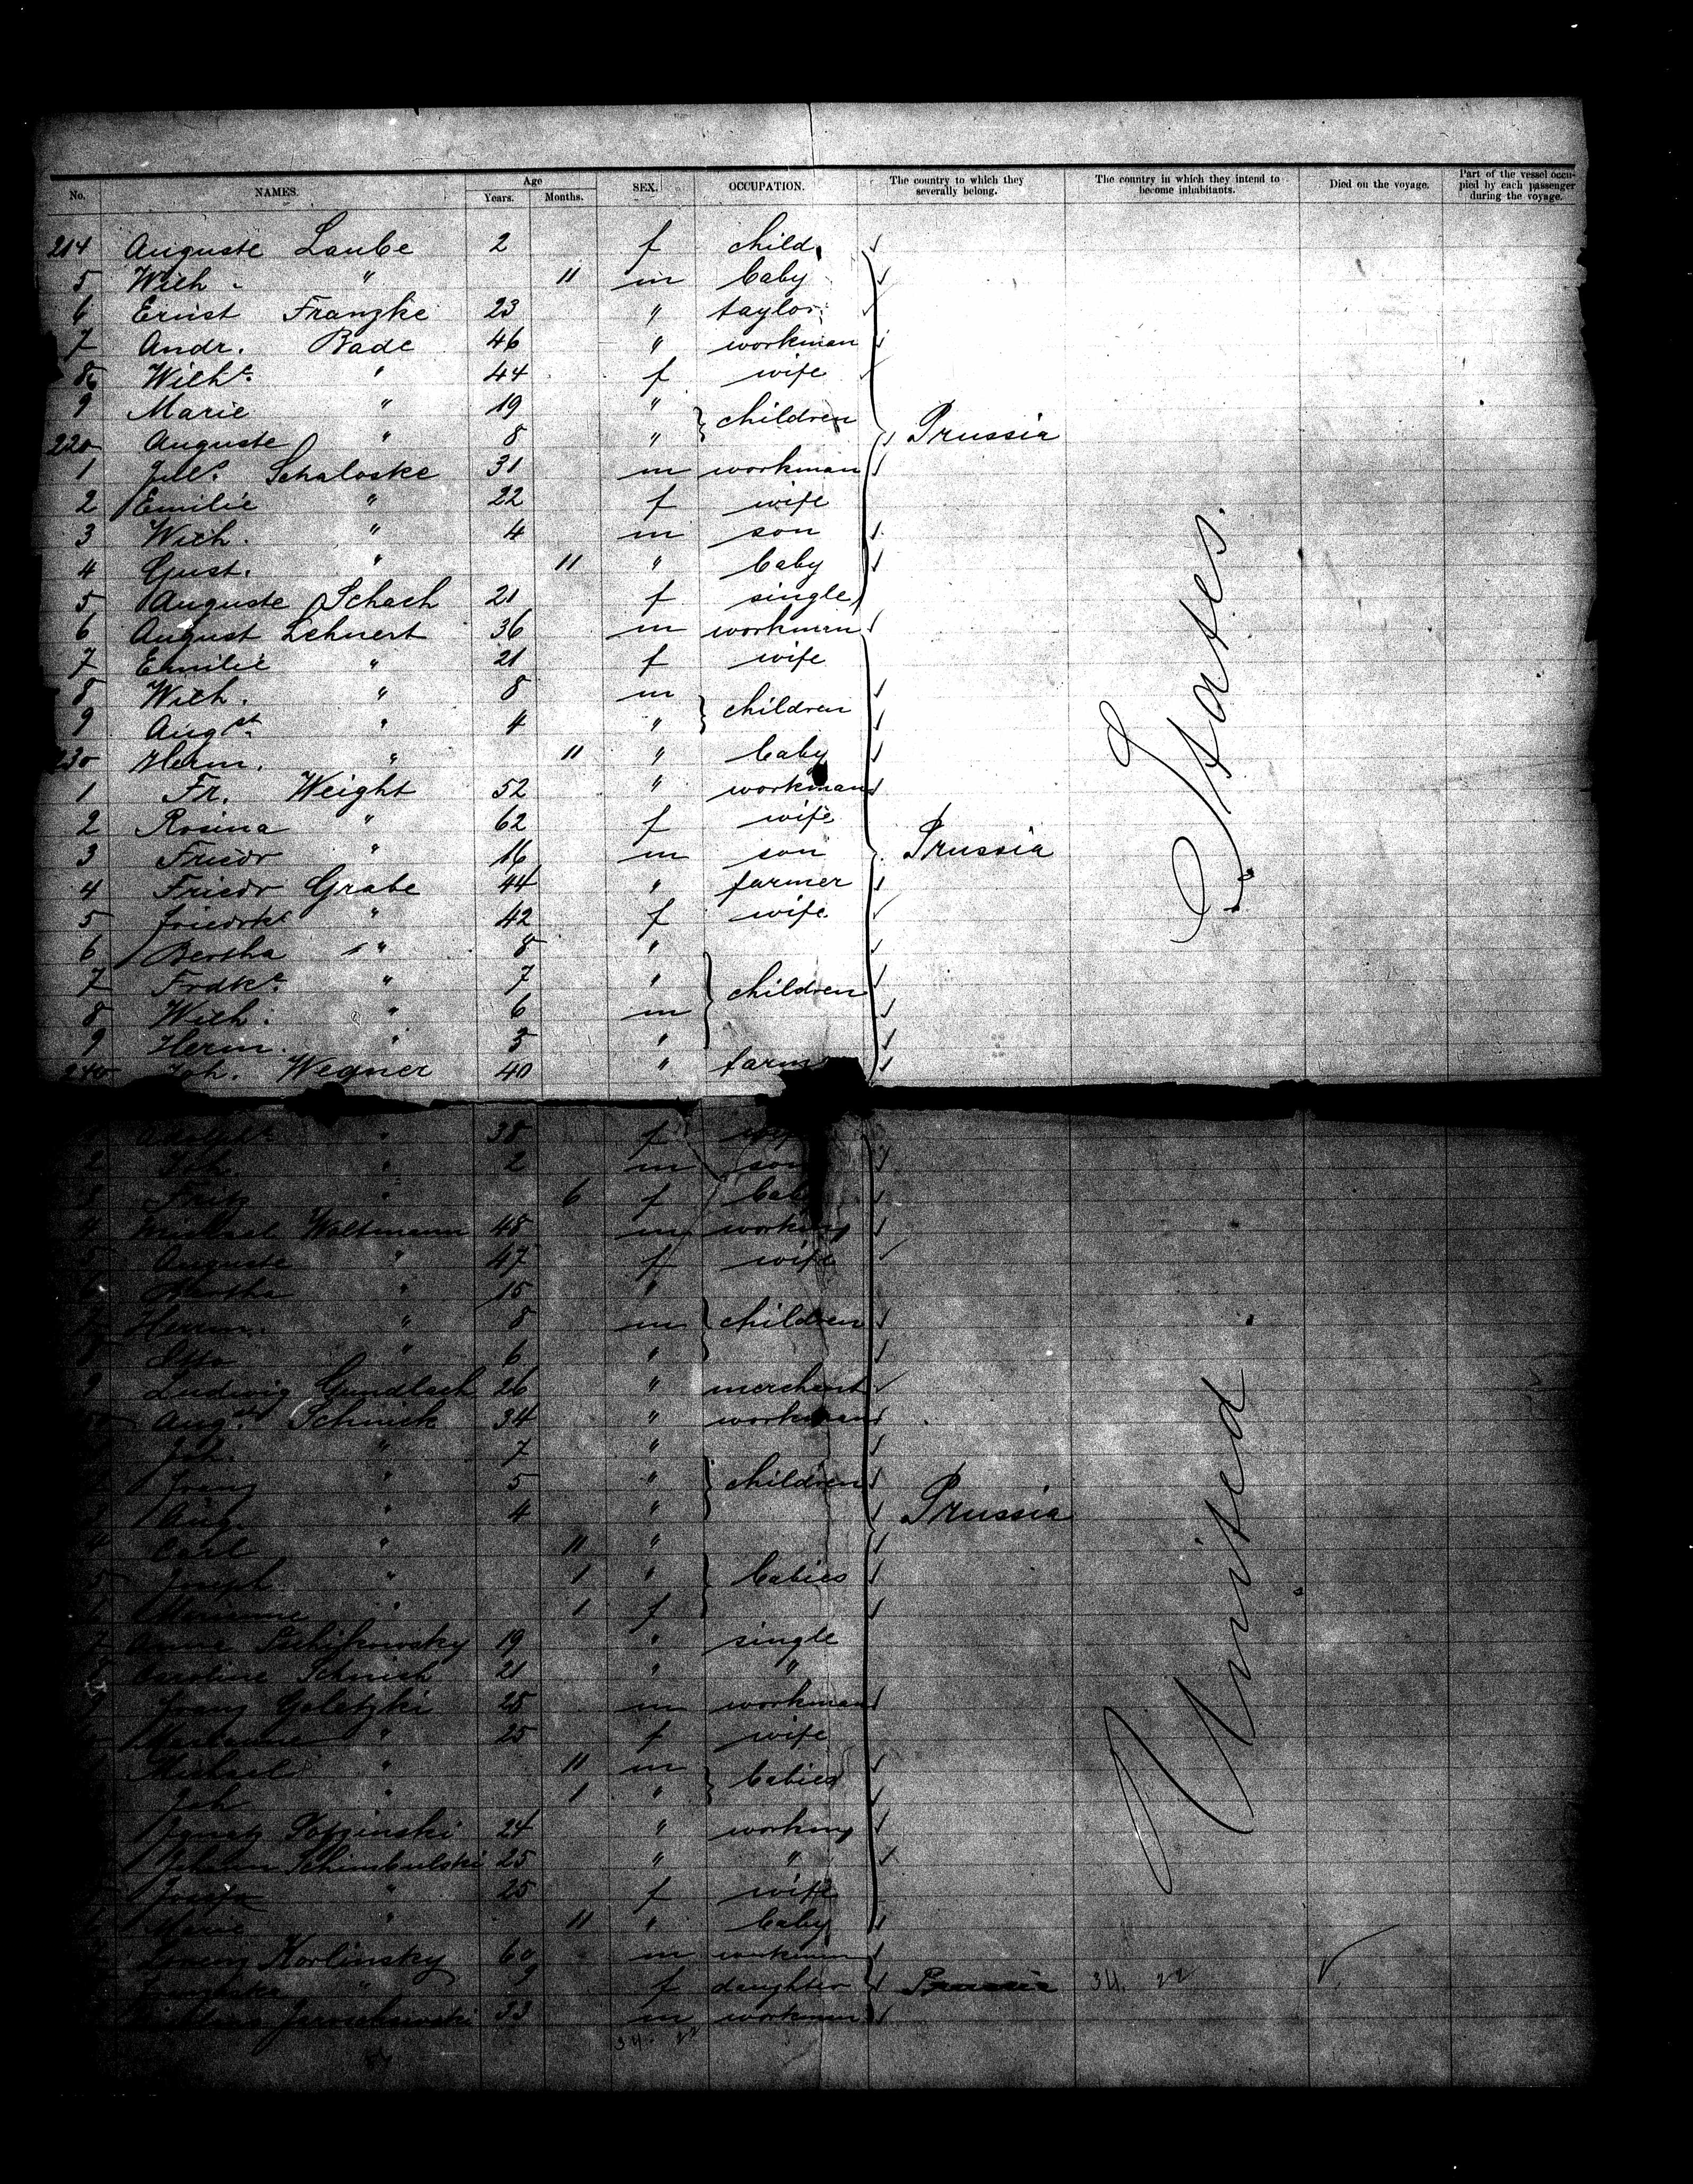 No. NAMES. Age Years. Months. SEX. OCCUPATION. The country to which they severally belong. The country in which they intend to become inhabitants. Died on the voyage. Part of the vessel occupied by each passenger during the voyage.
214 Auguste Laube 2 f child
5 Wilh. " 11 m baby
6 Ernst Franzke 23 " taylor
7 Andr. Bade 46 " workman
8 Wilh.e " 44 f wife
9 Marie " 19 " children
220 Auguste " 8 " Prussia
1 Jul.s Schaloske 31 m workman
2 Emilie " 22 f wife
3 Wilh. " 4 m son
4 Gust. " 11 " baby
5 Auguste Schach 21 f single
6 August Lehnert 36 m workman
7 Emilie " 21 f wife
8 Wilh. " 8 m children
9 Aug.st " 4 "
230 Herm. " 11 " baby
1 Fr. Weight 52 " workman
2 Rosina " 62 f wife
3 Friedr " 16 m son Prussia
4 Friedr Grabe 44 " farmer
5 Friedrke " 42 f wife
6 Bertha " 8 "
7 Frdke. " 7 " children
8 Wilh. " 6 m
9 Herm. " 3 "
240 Joh. Wegner 40 " farm
" 38 f
2 Joh. " 2 m son
3 Fritz " 6 f baby
4 Michael Waltmann 48 m working
5 Auguste " 47 f wife
6 Bertha " 15 "
7 Herrm. " 8 m children
8 Otto " 6 "
9 Ludwig Gundlach 26 " merchant
Aug.st Schnick 34 " workman
Joh. " 7 "
Franz " 5 " children
Aug. " 4 " Prussia
4 Carl " 11 "
5 Joseph " 1 " babies
Marianne " 1 f
7 Anna 19 " single
8 Caroline Schnick 21 " "
9 Franz Goletzki 25 m workman
Marianne " 25 f wife
Michael " 11 m babies
Joh " 1 "
Ignatz 24 " working
25 " "
Josefa " 25 f wife
Marie " 11 " baby
Lorenz Korlinsky 60 m workman
" 9 f daughter Prussia 34. 22
33 m workman
34. 22
United States.